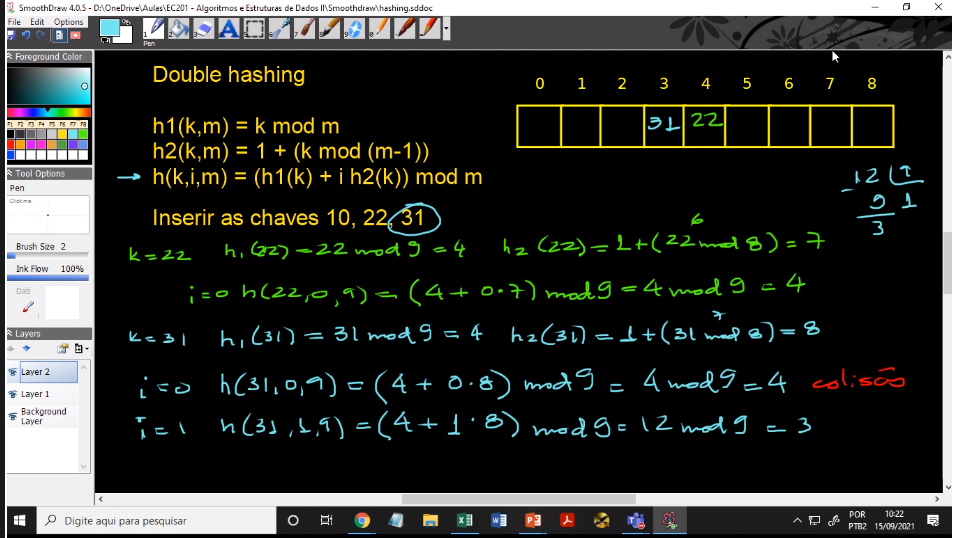 SmoothDraw 4.0.5 - D:\OneDrive\Aulas\EC201 - Algoritmos e Estruturas de Dados II\Smoothdraw\hashing.sddoc
File Edit Options
Pen
Foreground Color
F1 F2 F3 F4 F5 F6 F7 F8
Tool Options
Pen
Click me
Brush Size 2
Ink Flow 100%
Dab
Layers
Layer 2
Layer 1
Background
Layer
Double hashing
0 1 2 3 4 5 6 7 8
31 22
h1(k,m) = k mod m
h2(k,m) = 1 + (k mod (m-1))
→ h(k,i,m) = (h1(k) + i h2(k)) mod m
12
- 9 1
3
Inserir as chaves 10, 22, 31
6
k=22 h1(22)=22 mod 9 = 4 h2(22)=1+(22 mod 8) = 7
i=0 h(22,0,9) = (4+0.7) mod 9 = 4 mod 9 = 4
7
k=31 h1(31) = 31 mod 9 = 4 h2(31) = 1+(31 mod 8) = 8
i=0 h(31,0,9) = (4+0.8) mod 9 = 4 mod 9 = 4 colisão
i=1 h(31,1,9) = (4+1·8) mod 9 = 12 mod 9 = 3
Digite aqui para pesquisar
POR
PTB2
10:22
15/09/2021